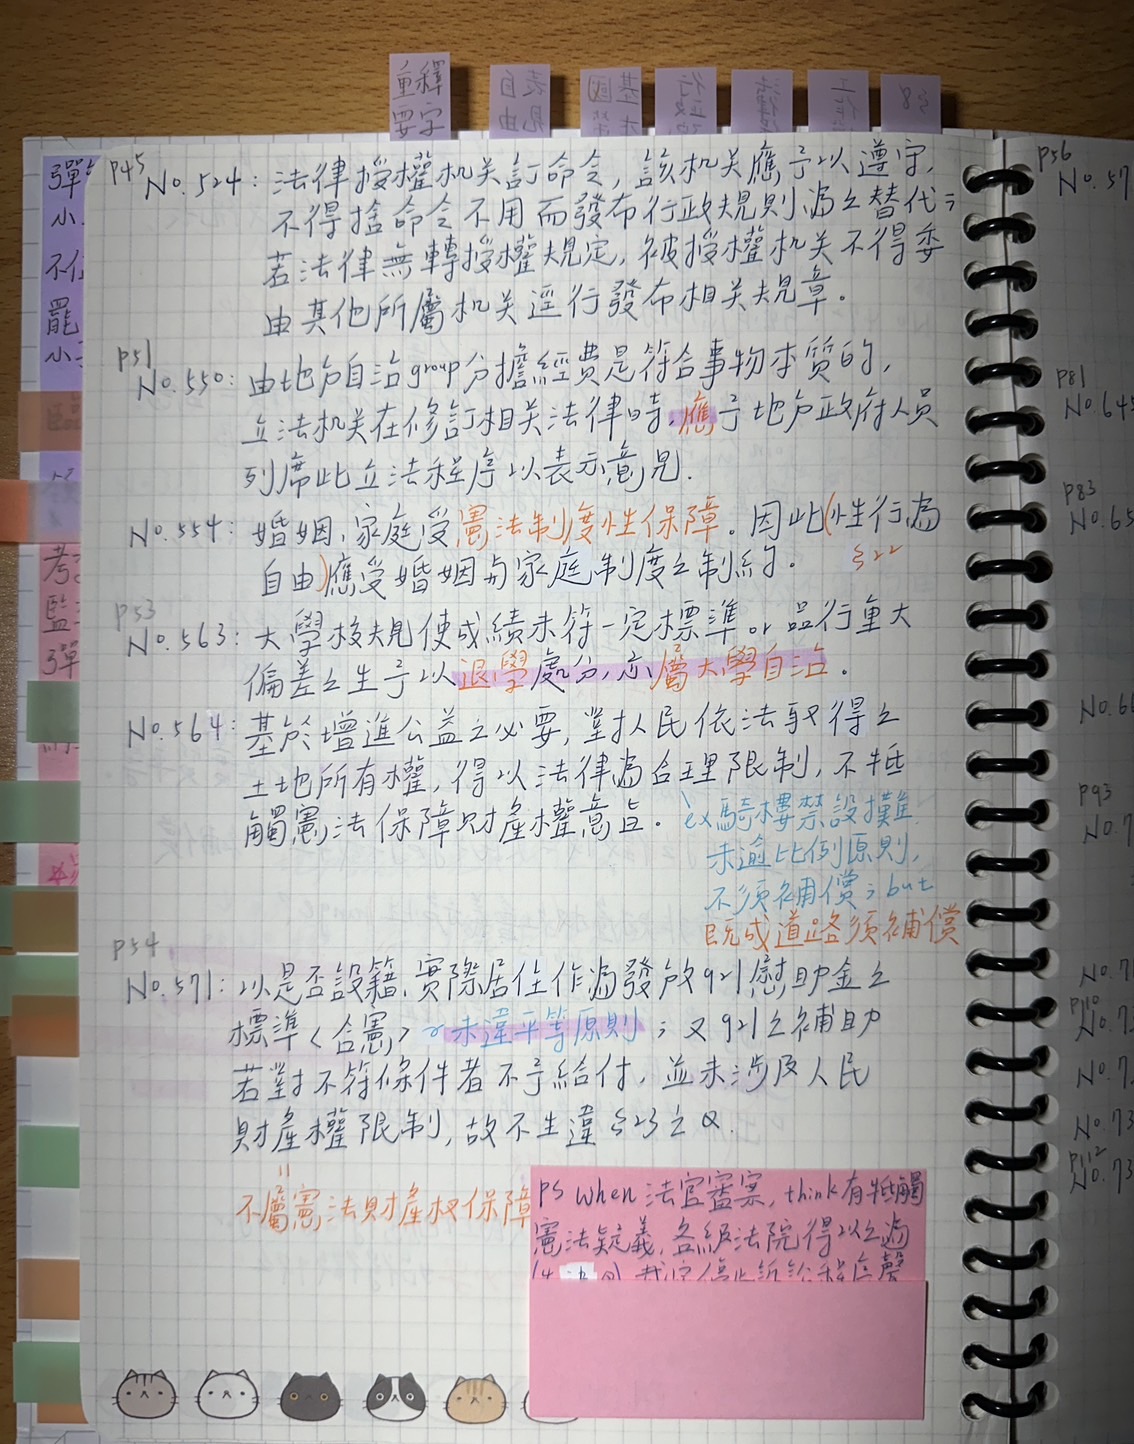 重釋
要字
表見
自由
P45
No.524: 法律授權机关訂命令, 該机关應予以遵守,
不得捨命令不用而發布行政規則為之替代;
若法律無轉授權規定, 被授權机关不得委
由其他所屬机关逕行發布相关規章.
P51
No.550: 由地方自治group分擔經費是符合事物本質的,
立法机关在修訂相关法律時, 應予地方政府人員
列席此立法程序以表示意見.
No.554: 婚姻、家庭受憲法制度性保障. 因此(性行為
自由)應受婚姻与家庭制度之制約. §22
P53
No.563: 大學校規使成績未符一定標準 or 品行重大
偏差之生予以退學處分, 亦屬大學自治.
No.564: 基於增進公益之必要, 對人民依法取得之
土地所有權, 得以法律為合理限制, 不牴
觸憲法保障財產權意旨.
ex騎樓禁設攤
未逾比例原則,
不須補償; but
既成道路須補償
P54
No.571: 以是否設籍、實際居住作為發放921慰助金之
標準<合憲> 未違平等原則; 又921之補助
若對不符條件者不予給付, 並未涉及人民
財產權限制, 故不生違§23之Q.
不屬憲法財產权保障
PS when 法官審案, think有牴觸
憲法疑義, 各級法院得以之為
P56
No.57
P81
No.64
P83
No.65
No.6
P93
No.7
No.7
P110
No.7
No.7
No.73
P112
No.73